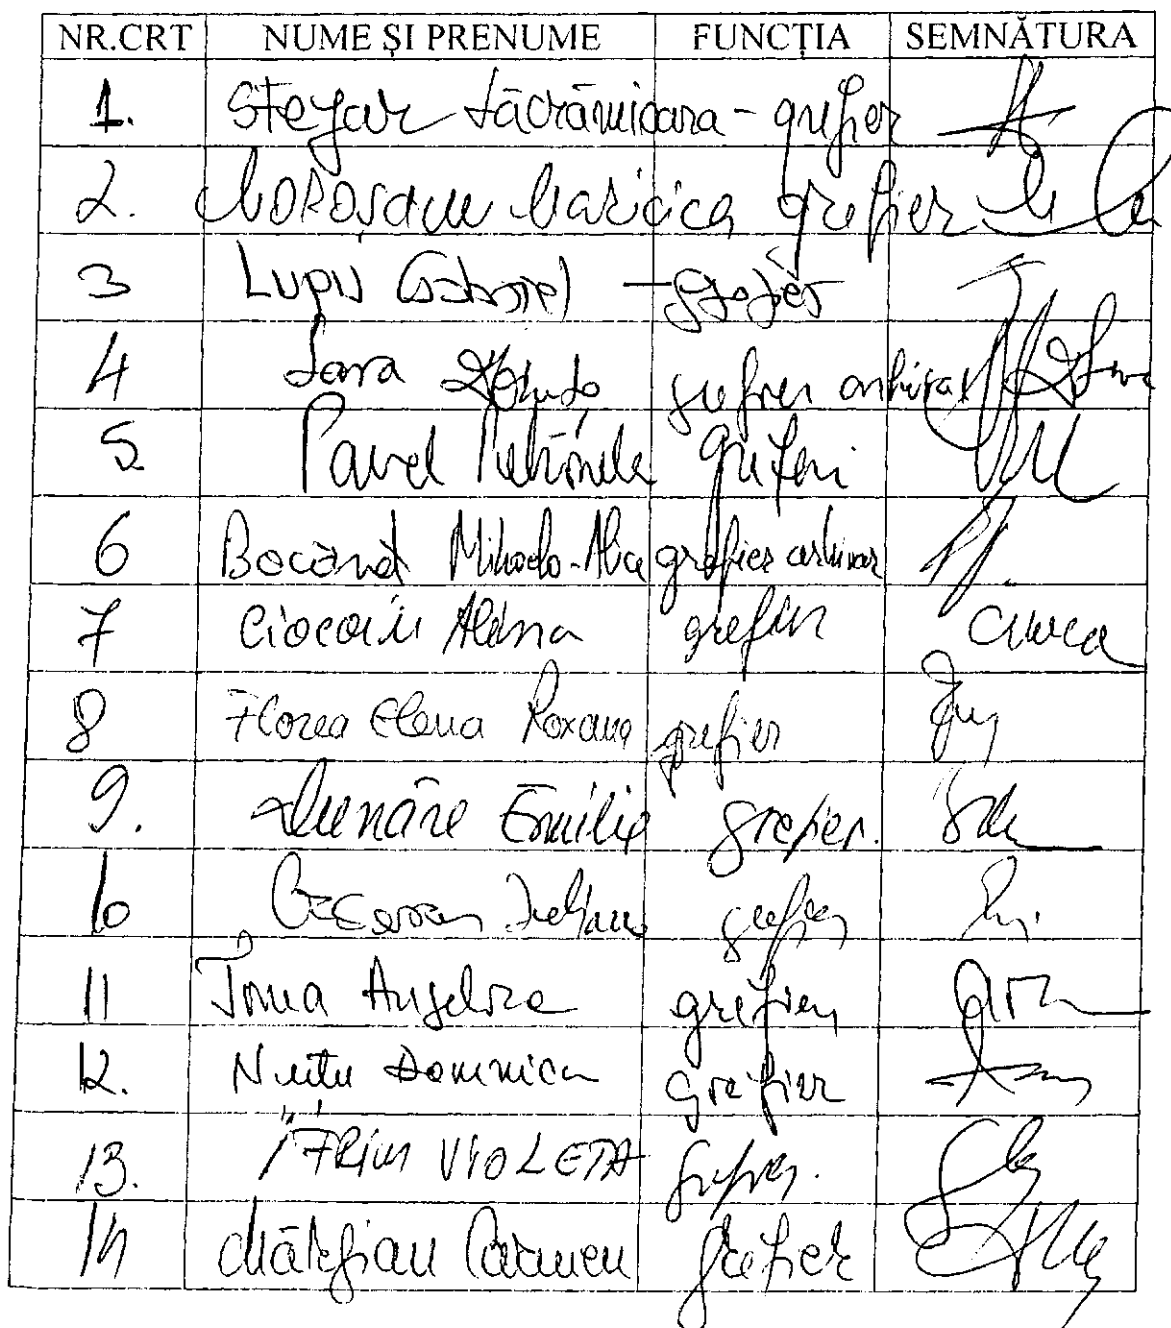 NR.CRT NUME ȘI PRENUME FUNCȚIA SEMNĂTURA
1. Stejar Lăcrămioara - grefier
2. Moroșanu Maricica grefier
3 Lupu Gabriel - grefier
4 grefier arhivar
5 Pavel Petronela grefier
6 Bocănă Mihaela-Alice grefier arhivar
7 Ciocoiu Alina grefier
8 Florea Elena Roxana grefier
9. Dunăre Emilia grefier.
10 Iuliana grefier
11 Angelica grefier
12. Nuțu Domnica grefier
13. VIOLETA grefier.
14 Carmen grefier